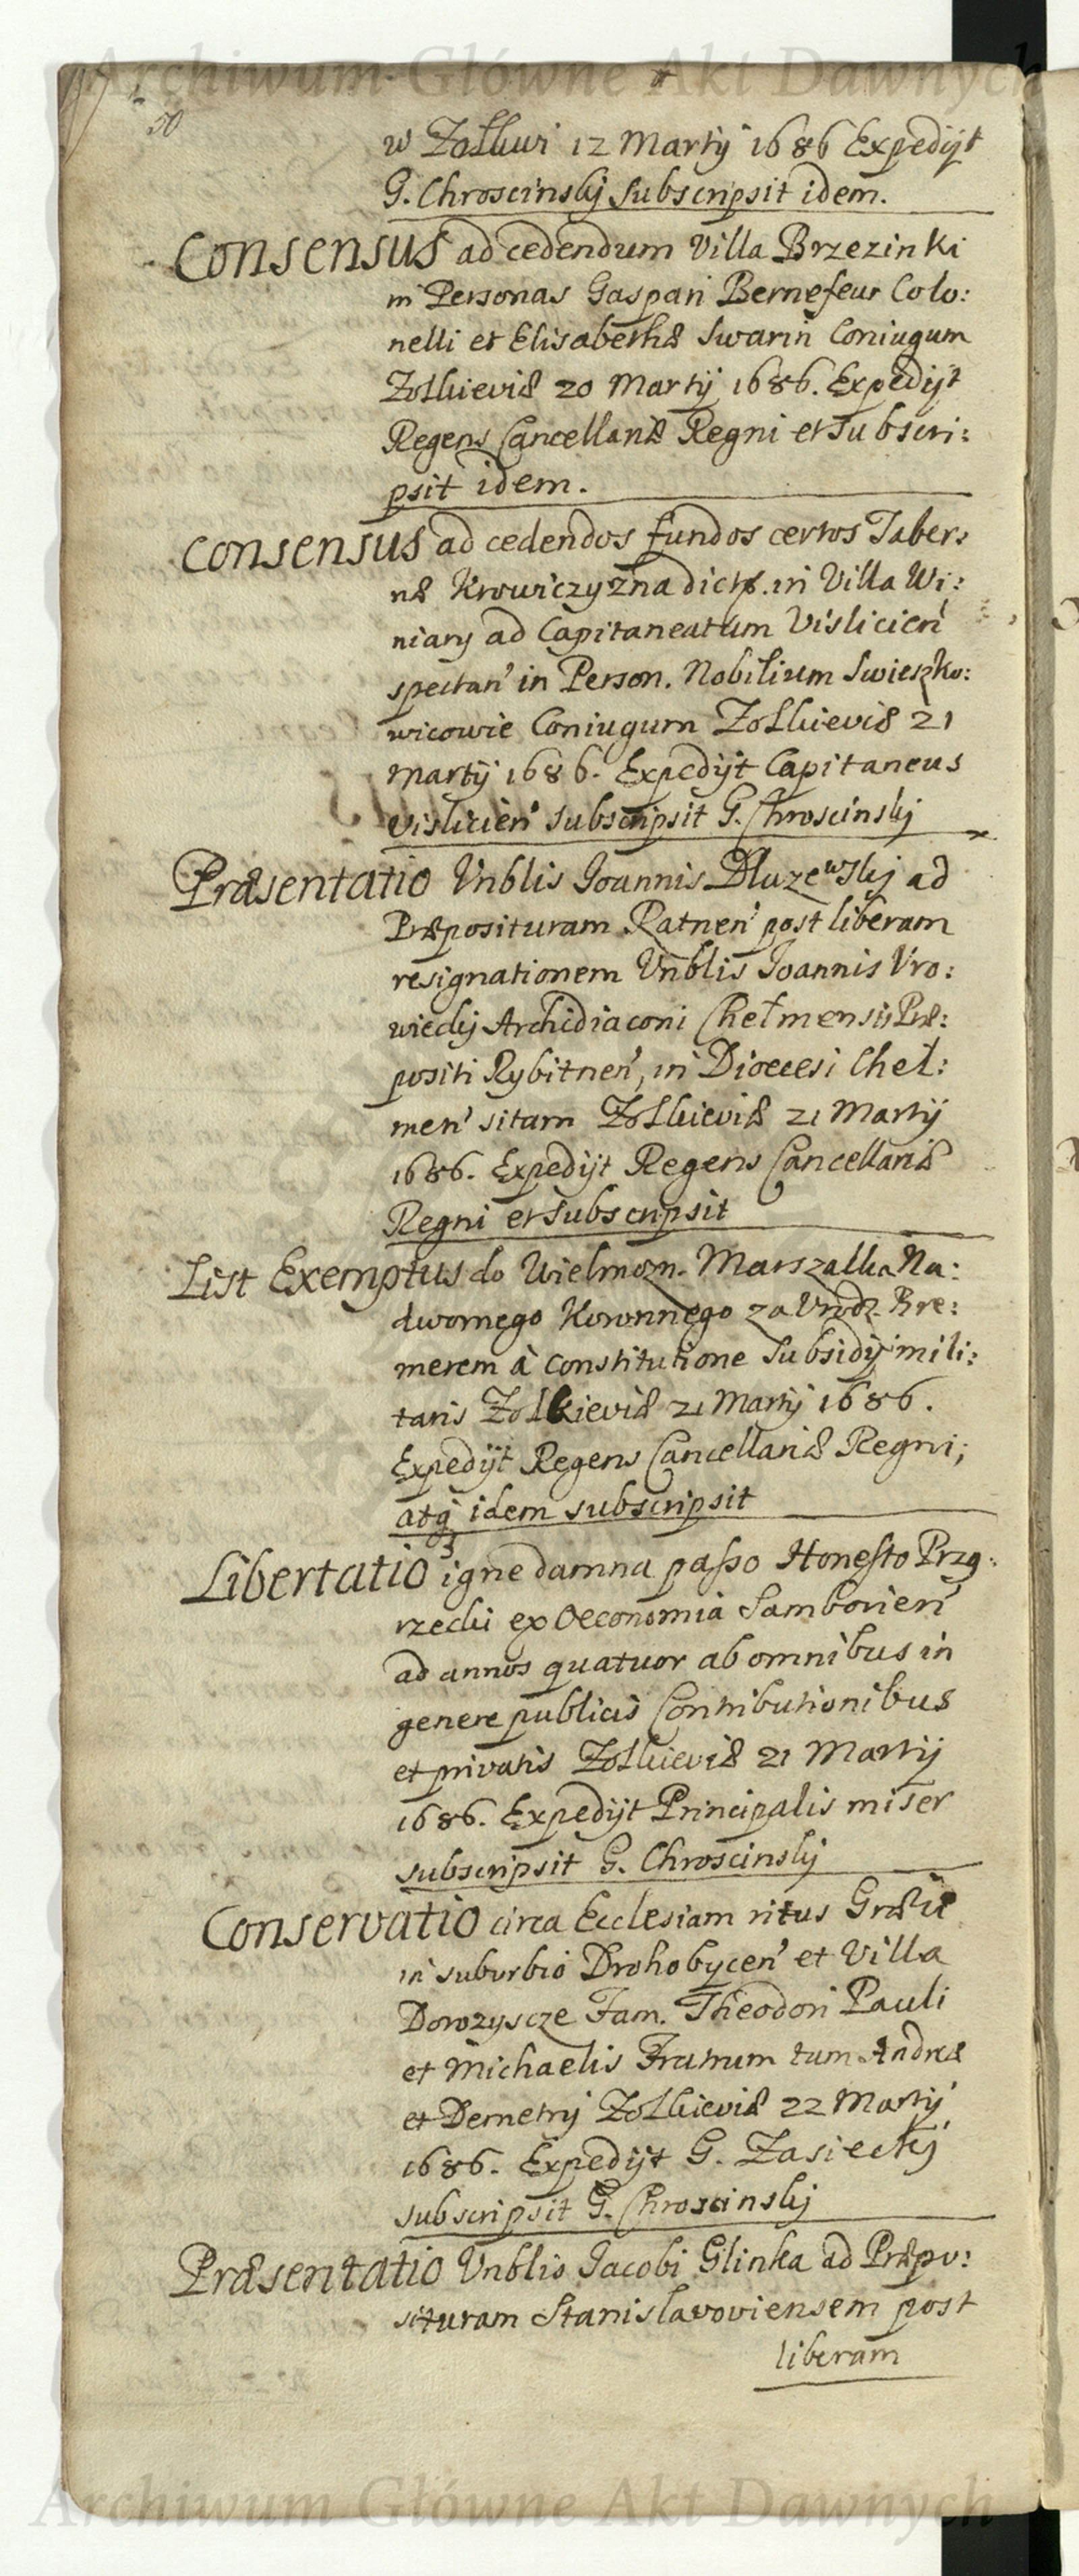 Archiwum Główne Akt Dawnych
50
w Zolkwi 12 Martij 1686 Expedijt
G. Chroscinskj subscripsit idem.
Consensus ad cedendum Villa Brzezinki
in Personas Gaspari Bernefeur Colo:
nelli et Elisabethæ Swarin Coniugum
Zolkieviæ 20 Martij 1686. Expedijt
Regens Cancellariæ Regni et subscri:
psit idem.
Consensus ad cedendos fundos certos Taber:
næ Krowiczyzna dictæ. in Villa Wi:
niary ad Capitaneatum Vislicien̄
spectan̄ in Person. Nobilium Swieszko:
wicowie Coniugum Zolkieviæ 21
Martij 1686. Expedijt Capitaneus
Vislicien̄ subscripsit G. Chroscinskj
Præsentatio Vnblis Joannis Dluzewskj ad
Præposituram Ratnen̄ post liberam
resignationem Vnblis Joannis Vro:
wieckj Archidiaconi Chełmensis Præ:
positi Rybitnen̄, in Dioecesi Cheł:
men̄ sitam Zolkieviæ 21 Martij
1686. Expedijt Regens Cancellariæ
Regni et subscripsit
List Exemptus do Wielmozn. Marszalka Na:
dwornego Koronnego za Vrodz. Bre:
merem à constitutione subsidij mili:
taris Zolkieviæ 21 Martij 1686.
Expedijt Regens Cancellariæ Regni;
atq idem subscripsit
Libertatio igne damna passo Honesto Przy:
rzecki ex Oeconomia Samborien̄
ad annos quatuor ab omnibus in
genere publicis Contributionibus
et privatis Zolkieviæ 21 Martij
1686. Expedijt Principalis miser
subscripsit G. Chroscinskj
Conservatio circa Ecclesiam ritus Græci
in suburbio Drohobycen̄ et Villa
Dorozyscze Fam. Theodori Pauli
et Michaelis Fratrum tum Andreæ
et Demetrij Zolkieviæ 22 Martij
1686. Expedijt G. Zasieckj
subscripsit G. Chroscinskj
Præsentatio Vnblis Jacobi Glinka ad Præpo:
situram Stanislavoviensem post
liberam
Archiwum Główne Akt Dawnych